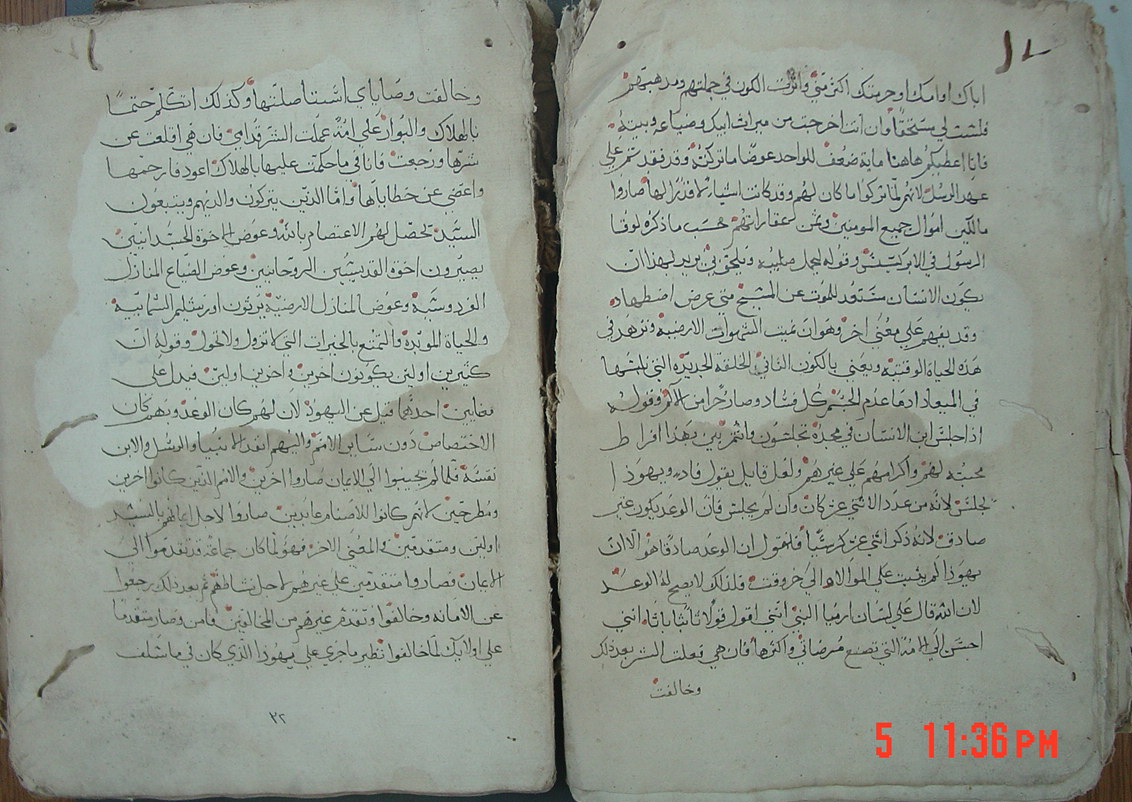 اباك اوامك اوحرمتك اكثر مني واثرت الكون في جملتهم ومذهبهم
فلست لي مستحقا وان انت اخرجت من ميراث ابيك وضياعه وبيته
فانا اعطيكم هاهنا ماية ضعف للواحد عوضا ما تركته وقد فقد تم على
عهد الرسل لانهم لما تركوا ما كان لهم وقد كانت اشيا لا قدر لها صاروا
مالكين اموال جميع المومنين وثمن عقاراتهم حسب ما ذكره لوقا
الرسول في الابركسيس وقوله يحمل صليبه ويلحق بي يريد بهذا ان
يكون الانسان مستعد للموت عن المسيح متي عرض اضطهاد
وقد يفهم علي معني اخر وهو ان يميت الشهوات الارضية ويزهد في
هذه الحياة الوقتية ويعني بالكون الثاني الخلقة الجديده التي نلبسها
في الميعاد اذ ما عدم الجسم كل فساد وصار حرا من الالم وقوله
اذا جلس ابن الانسان في مجده تجلسون وانتم بين بهذا افراط
محبته لهم واكرامهم علي غيرهم ولعل قايل يقول فاده ويهوذا
يجلس لانه من عدد الاثني عشر كان وان لم يجلس فان الوعد يكون غير
صادق لانه ذكر اثني عشر كرسيا فنقول ان الوعد صادقا هو الا ان
يهوذا لم يثبت علي الموالاه الي اخر وقت فلذلك لا يصح له الوعد
لان الله قال علي لسان ارميا النبي انني اقول قولا ثابتا باتا انني
احسن الي الامة التي تصنع مرضاتي واكثرها فان هي فعلت الشر بعد ذلك
وخالفت
وخالفت وصاياي انني استاصلتها وكذلك اتكلم حتما
بالهلاك والبوار علي امة عملت الشر قدامي فان هي اقلعت عن
شرها ورجعت فانا في ما حكمت عليها بالهلاك اعود فارحمها
واغضي عن خطاياها واما الذين يتركون والديهم ويتبعون
السيد يحصل لهم الاعتصام بالله وعوض الاخوة الجسدانيين
يصيرون اخوة القديسين الروحانيين وعوض الضياع المنازل
الفردوسية وعوض المنازل الارضية يرثون اورشليم السماييه
والحياة الموبدة والتمتع بالخيرات التي لا تزول ولا تحول وقوله ان
كثيرين اولين يكونون اخرين واخرين اولين فيدل علي
معنيين احدهما قيل عن اليهود لان لهم كان الوعد وبهم كان
الاختصاص دون ساير الامم واليهم انفد الانبيا والرسل والابن
نفسه فلما لم يجيبوا الي الايمان صاروا اخرين والامم الذين كانوا اخرين
ومطرحين لانهم كانوا للاصنام عابدين صاروا لاجل ايمانهم بالسيد
اولين ومتقدمين والمعني الاخر فهو لما كان جماعة قد تقدموا الي
الايمان فصاروا متقدمين علي غيرهم لاجل نشاطهم ثم بعد ذلك رجعوا
عن الامانه وخالفوا وتقدم غيرهم من المخالفين فامن وصار متقدما
علي اولايك لما خالفوا نظير ما جري علي يهوذا الذي كان في ما سلف
٣٢
5 11:36 PM